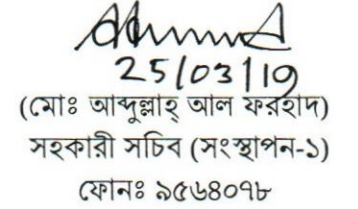 25/03/19
(মোঃ আব্দুল্লাহ্ আল ফরহাদ)
সহকারী সচিব (সংস্থাপন-১)
ফোনঃ ৯৫৬৪০৭৮